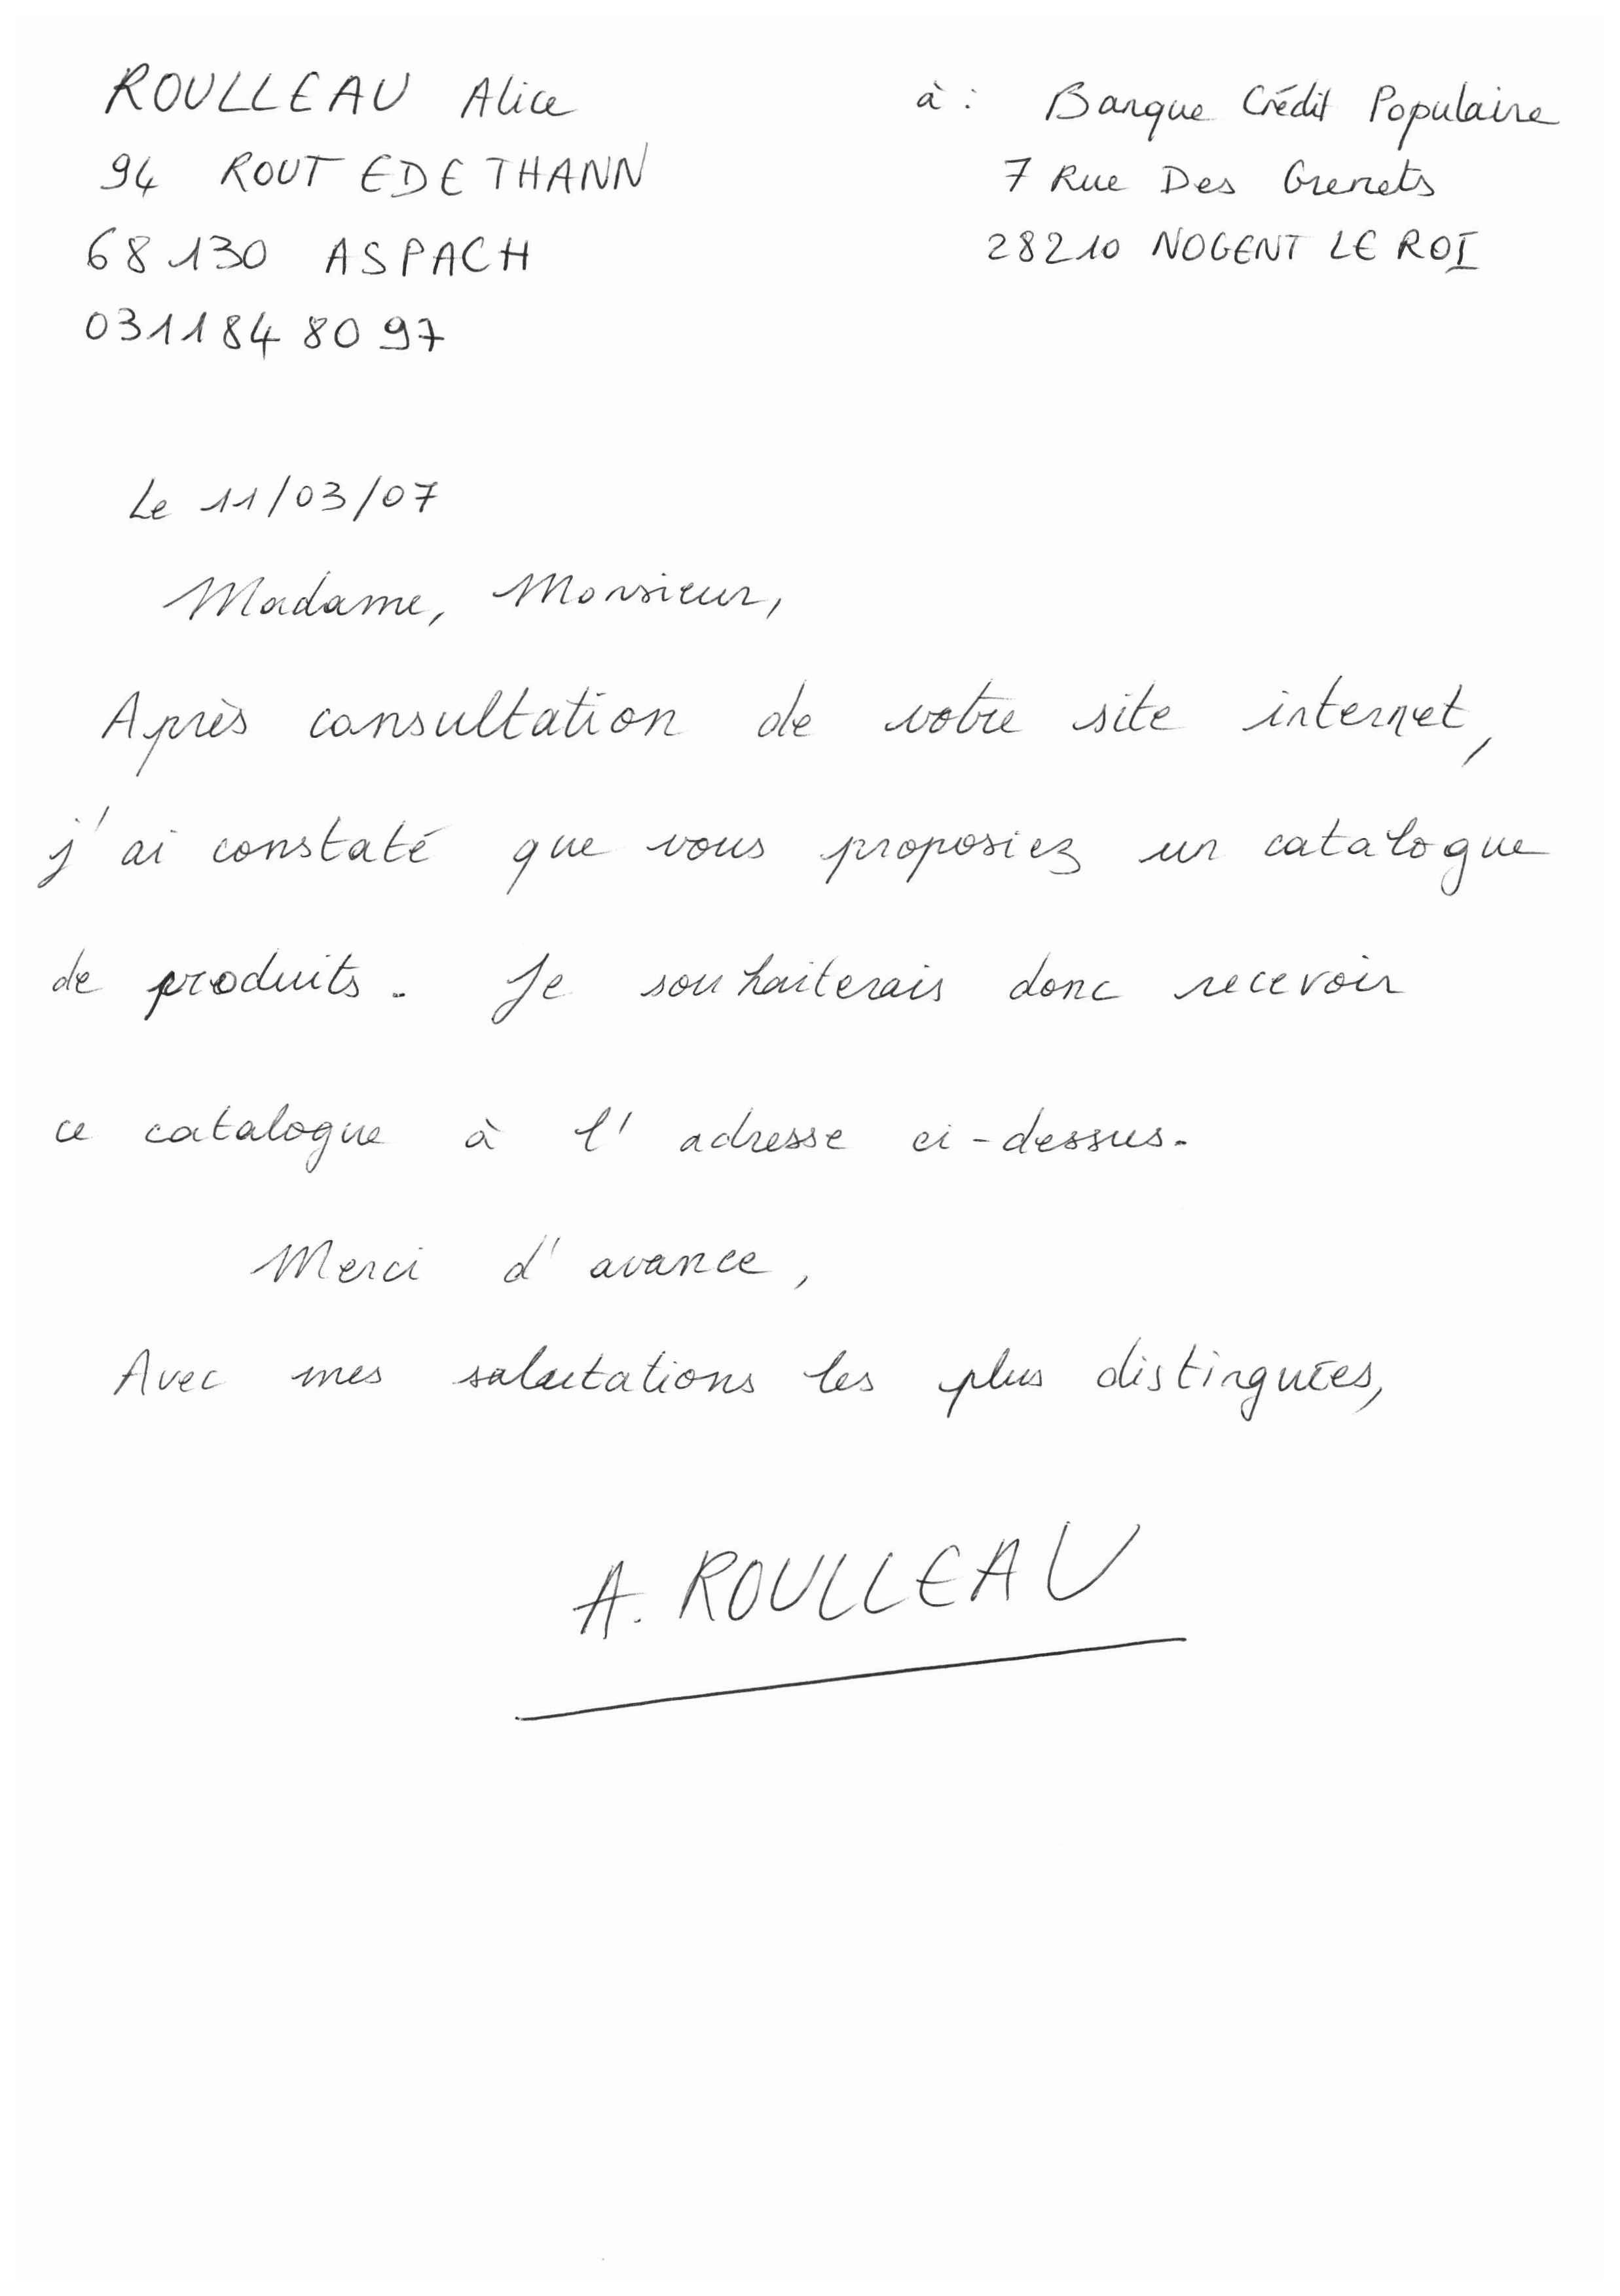 ROULLEAU Alice
94 ROUT EDE THANN
68130 ASPACH
0311848097
à : Banque Crédit Populaire
7 Rue Des Grenets
28210 NOGENT LE ROI
Le 11/03/07
Madame, Monsieur,
Après consultation de votre site internet,
j'ai constaté que vous proposiez un catalogue
de produits. Je souhaiterais donc recevoir
ce catalogue à l'adresse ci-dessus.
Merci d'avance,
Avec mes salutations les plus distinguées,
A. ROULLEAU